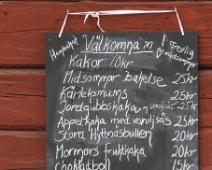 Hembakat Välkomna in Trevlig midsommar
Kakor 10kr
Midsommar bakelse 25kr
Kärleksmums 25kr
Jordgubbskaka m vaniljsås 25kr
Äppelkaka med vaniljsås 25kr
Stora Hyttnäsbullen 20kr
Mormors fruktkaka 20kr
Chokladboll 15kr